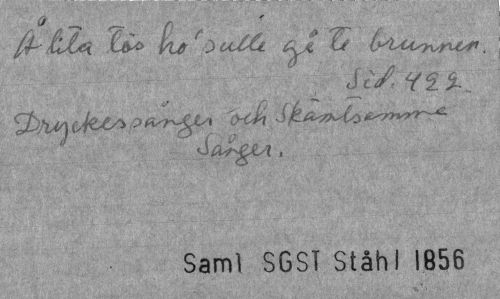 Å lita tös ho' sulle gå te brunnen.
Sid. 422.
Dryckessånger och Skämtsamma
Sånger.
Saml SGST Ståhl 1856